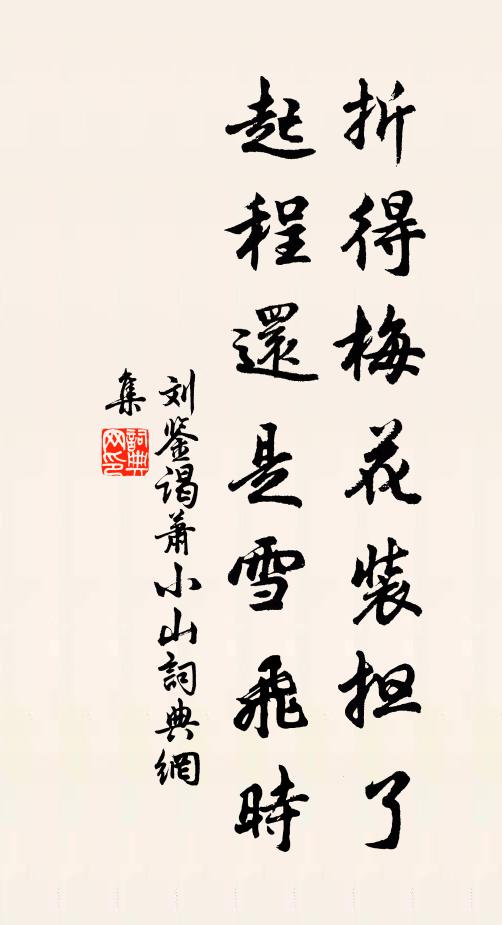 折得梅花装担了
起程還是雪飛時
刘鉴谒蕭小山詞典網
集
詞典網印